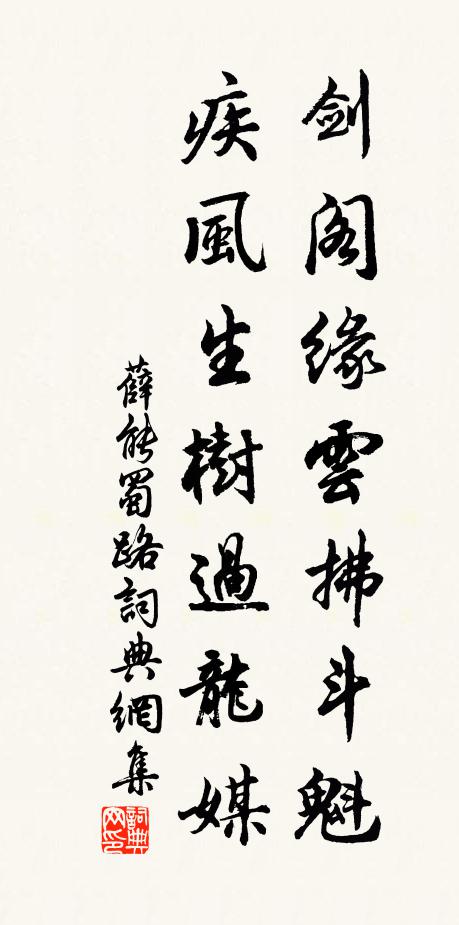 劍閣緣雲拂斗魁
疾風生樹過龍媒
薛能蜀路詞典網集
詞典網印